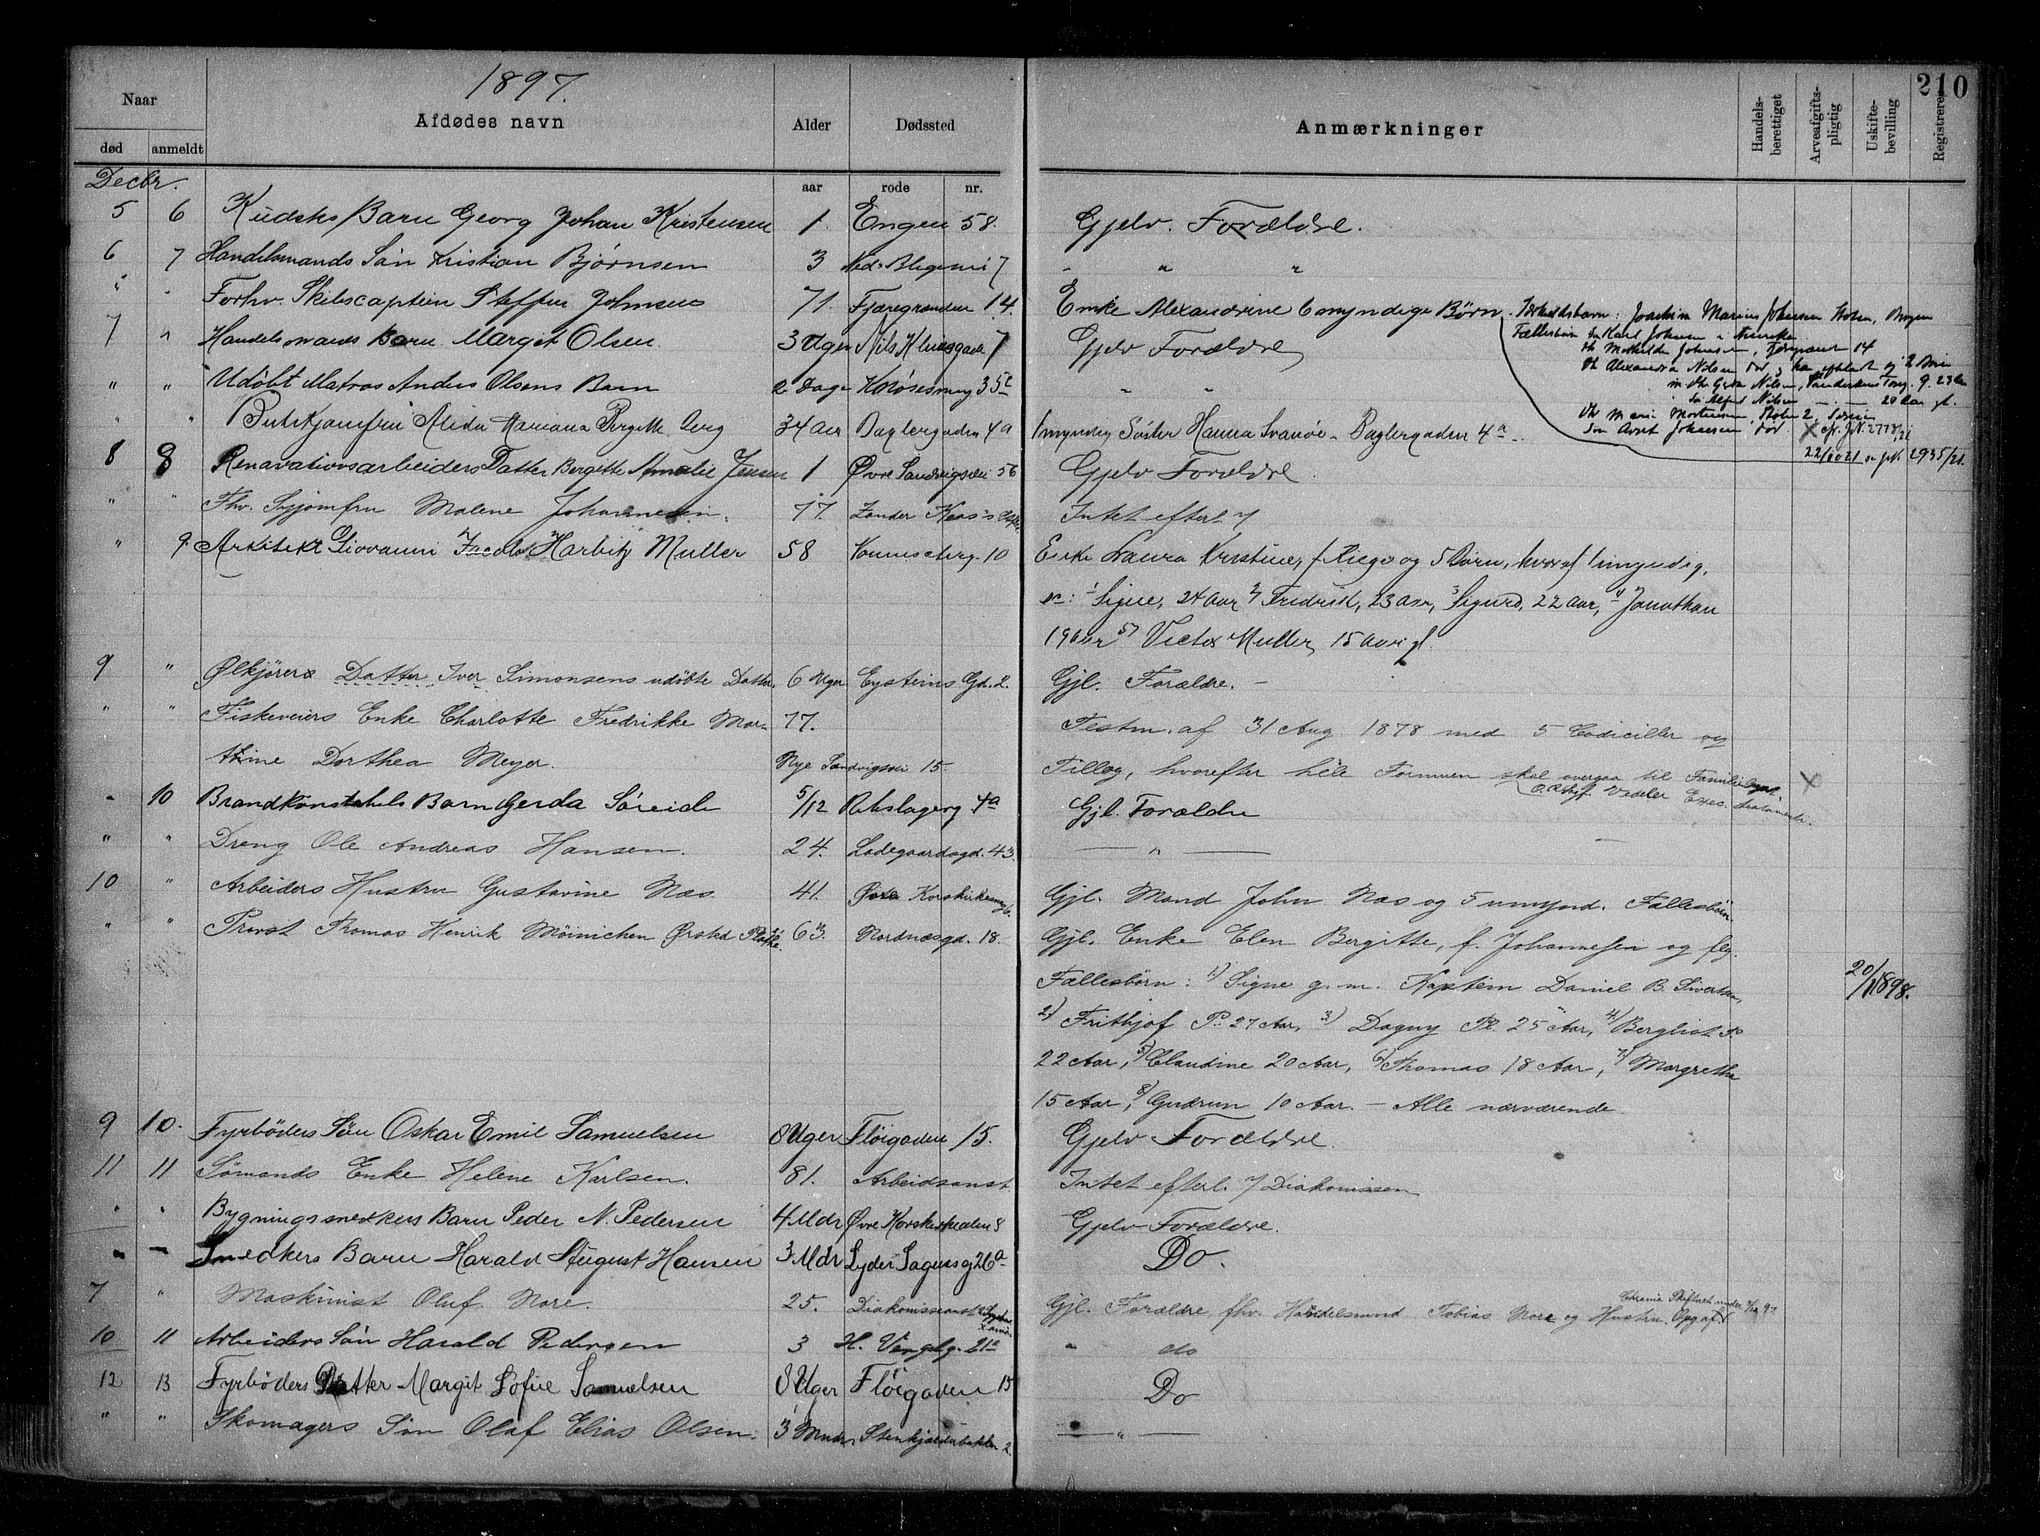 210
1897.
Naar
Afdødes navn
Alder
Dødssted
Anmærkninger
Handels-berettiget
Arveafgifts-pligtig
Uskifte-bevilling
Registreret
død anmeldt
aar rode nr.
Decbr.
5 6 Kudsks Barn Georg Johan Kristensen 1. Engen 58. Gjelv. Forældre.
6 7 Handelsmands Søn Kristian Bjørnsen 3 Ned. 7 " " "
" " Forhv. Skibscaptein Steffen Johnsen 71. Fjæregranden 14. Enke Alexandrine 6 myndige Børn.
Joachim Marius Johnsen Stolen, Bergen
Karl Johnsen i Amerika
Mathilde Johnsen, 14
Alexandra Nilsen død,
Nilsen, 9. 23 Aar
Alfred Nilsen 20 Aar gl.
Marie Mortensen Stolen 2,
Søn Johnsen død. X cfr. J.N. 2778/21
22/10 21 2935/21.
7 " Handelsmands Barn Margit Olsen 3 Uger Nils Klimsgade 7 Gjelv Forældre
" " Udøbt Matros Anders Olsens Barn 2 Dage Knøsesmug 35c " "
" " Butikjomfru Alida Mariana Bergitte Berg 34 Aar Baglergaden 4a 1 myndig Søster Hanna Svanøe - Baglergaden 4a.
8 8 Renovationsarbeiders Datter Bergitte Amalie Jensen 1 Øvre Sandvigsvei 56 Gjelv Forældre.
" " Fhv. Syjomfru Malene Johannesen. 77. Zander Kaas's Stift. Intet efterl.
" 9. Arkitekt Giovanni Jacob Harbitz Muller 58 Kommeberg. 10 Enke Laura Kristine, f. Riege og 5 Børn, hvoraf 1 myndig,
nc: 1 Signe, 24 Aar 2) Fredrik, 23 Aar, 3 Sigurd, 22 Aar, 4) Jonathan
19 Aar 5) Victor Muller, 15 Aar gl.
9 " Ølkjørers Datter Iver Simonsens udøbte Datter. 6 Uger Eysteins Gd. 2. Gjl. Forældre. -
" " Fiskeveiers Enke Charlotte Fredrikke Mar- 77. Testm. af 31 Aug. 1878 med 5 Codiciller og
thine Dorthea Meyer. Nye Sandvigsvei 15. Tillæg, hvorefter hele Formuen skal overgaa til Familielegat. X
- 10 Brandkonstabels Barn Gerda Søreide 5/12 Rebslagerg 4a Gjl. Forældre
" " Dreng Ole Andreas Hansen. 24. Ladegaardsgd. 43 — " —
10 " Arbeiders Hustru Gustavine Næs. 41. Øvre Korskirkesmug Gjl. Mand John Næs og 5 umynd. Fællesbørn
" " Provst Thomas Henrik Möinichen Ørsted Plathe. 63. Nordnæsgd. 18. Gjl. Enke Elen Bergitte, f. Johannesen og flg.
Fællesbørn: 1) Signe g. m. Kaptein Daniel B. Sivertsen, 20/1 1898.
2) Frithjof P. 27 Aar, 3) Dagny Pl. 25 Aar, 4) Bergliot P.
22 Aar, 5) Claudine 20 Aar, 6) Thomas 18 Aar, 7) Margrethe
15 Aar, 8) Gudrun 10 Aar. - Alle nærværende.
9 10. Fyrbøders Søn Oskar Emil Samuelsen 8 Uger Fløigaden 15. Gjelv Forældre.
11 11 Sømands Enke Helene Karlsen. 81. Arbeidsanst Intet efterl. Diakonissen
" " Bygningssnedkers Barn Peder N. Pedersen 4 Mdr Øvre Korskirkealm 8 Gjelv Forældre.
" - Snedkers Barn Harald August Hansen 3 Mdr Lyder Sagensg 26a Do.
7 " Maskinist Oluf Nore. 25. Diakonisseanst. Gjl. Forældre fhv. Handelsmand Tobias Nore og Hustru.
10 11 Arbeiders Søn Harald Pedersen 3 H. Vengelg. 21a " do
12 13 Fyrbøders Datter Margit Sofie Samuelsen 8 Uger Fløigaden 15 Do
" " Skomagers Søn Olaf Elias Olsen. 3 Mndr. Stenkjelderbakken 2. — " —